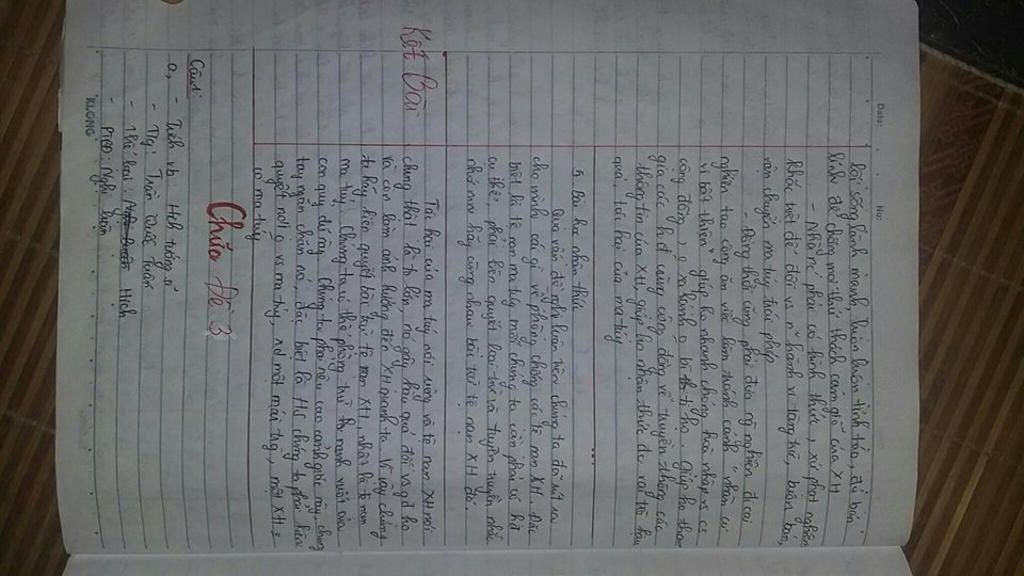 Date: No:
lối sống lành mạnh luôn luôn tỉnh táo, đủ bản
lĩnh để chống mọi thử thách cám dỗ của XH
- Nhà nc phải có hình thức, xử phạt
khắc triệt để đối vs n~ hành vi tàng trữ, buôn bán,
vận chuyển ma túy trái phép
- Đồng thời cũng phải đưa ng nghiện đi cai
nghiện tạo công ăn việc làm tránh cảnh " nhàn cư
vi bất thiện" giúp họ nhanh chóng hoà nhập vs
cộng đồng, o xa lánh o kì thị họ. Giúp họ tham
gia các hoạt cùng cộng đồng về tuyên thông các
thông tin của XH, giúp họ nhận thức đc vai trò hậu
quả, tác hại của ma túy
5. bài học nhận thức
Qua vấn đề nghị luận trên chúng ta đã rút ra
cho mình cái gì về phòng chống các tệ nạn XH. Đặc
biệt là tệ nạn ma túy, mỗi chúng ta cần phải có
cụ thể, phải kiên quyết loại trừ và tuyên truyền
chúng hãy cùng nhau bài trừ tệ nạn XH đó.
Kết Bài
Tác hại của ma túy nói riêng và tệ nạn XH nói
chung thật là to lớn, nó gây hậu quả đối vs gđ họ
và còn làm ảnh hưởng đến XH quanh ta. Vì vậy chúng
ta hãy kiên quyết bài trừ tệ nạn XH nhất là tệ nạn
ma túy, Chúng ta vì thế phòng thủ th mạnh vuốt của
con quỷ dữ ấy. Chúng ta phải nêu cao cảnh giác này, chung
tay ngăn chặn nó, đặc biệt là HS chúng ta phải kiên
quyết nói o vs ma túy, xd một mái trg, một XH
o ma túy
Chữa đề 3
Câu 1:
a, - Tích vb: Hịch tướng sĩ
- Tg: Trần Quốc Tuấn
- Thể loại: Hịch
- PTBĐ: Nghị luận
KLONG